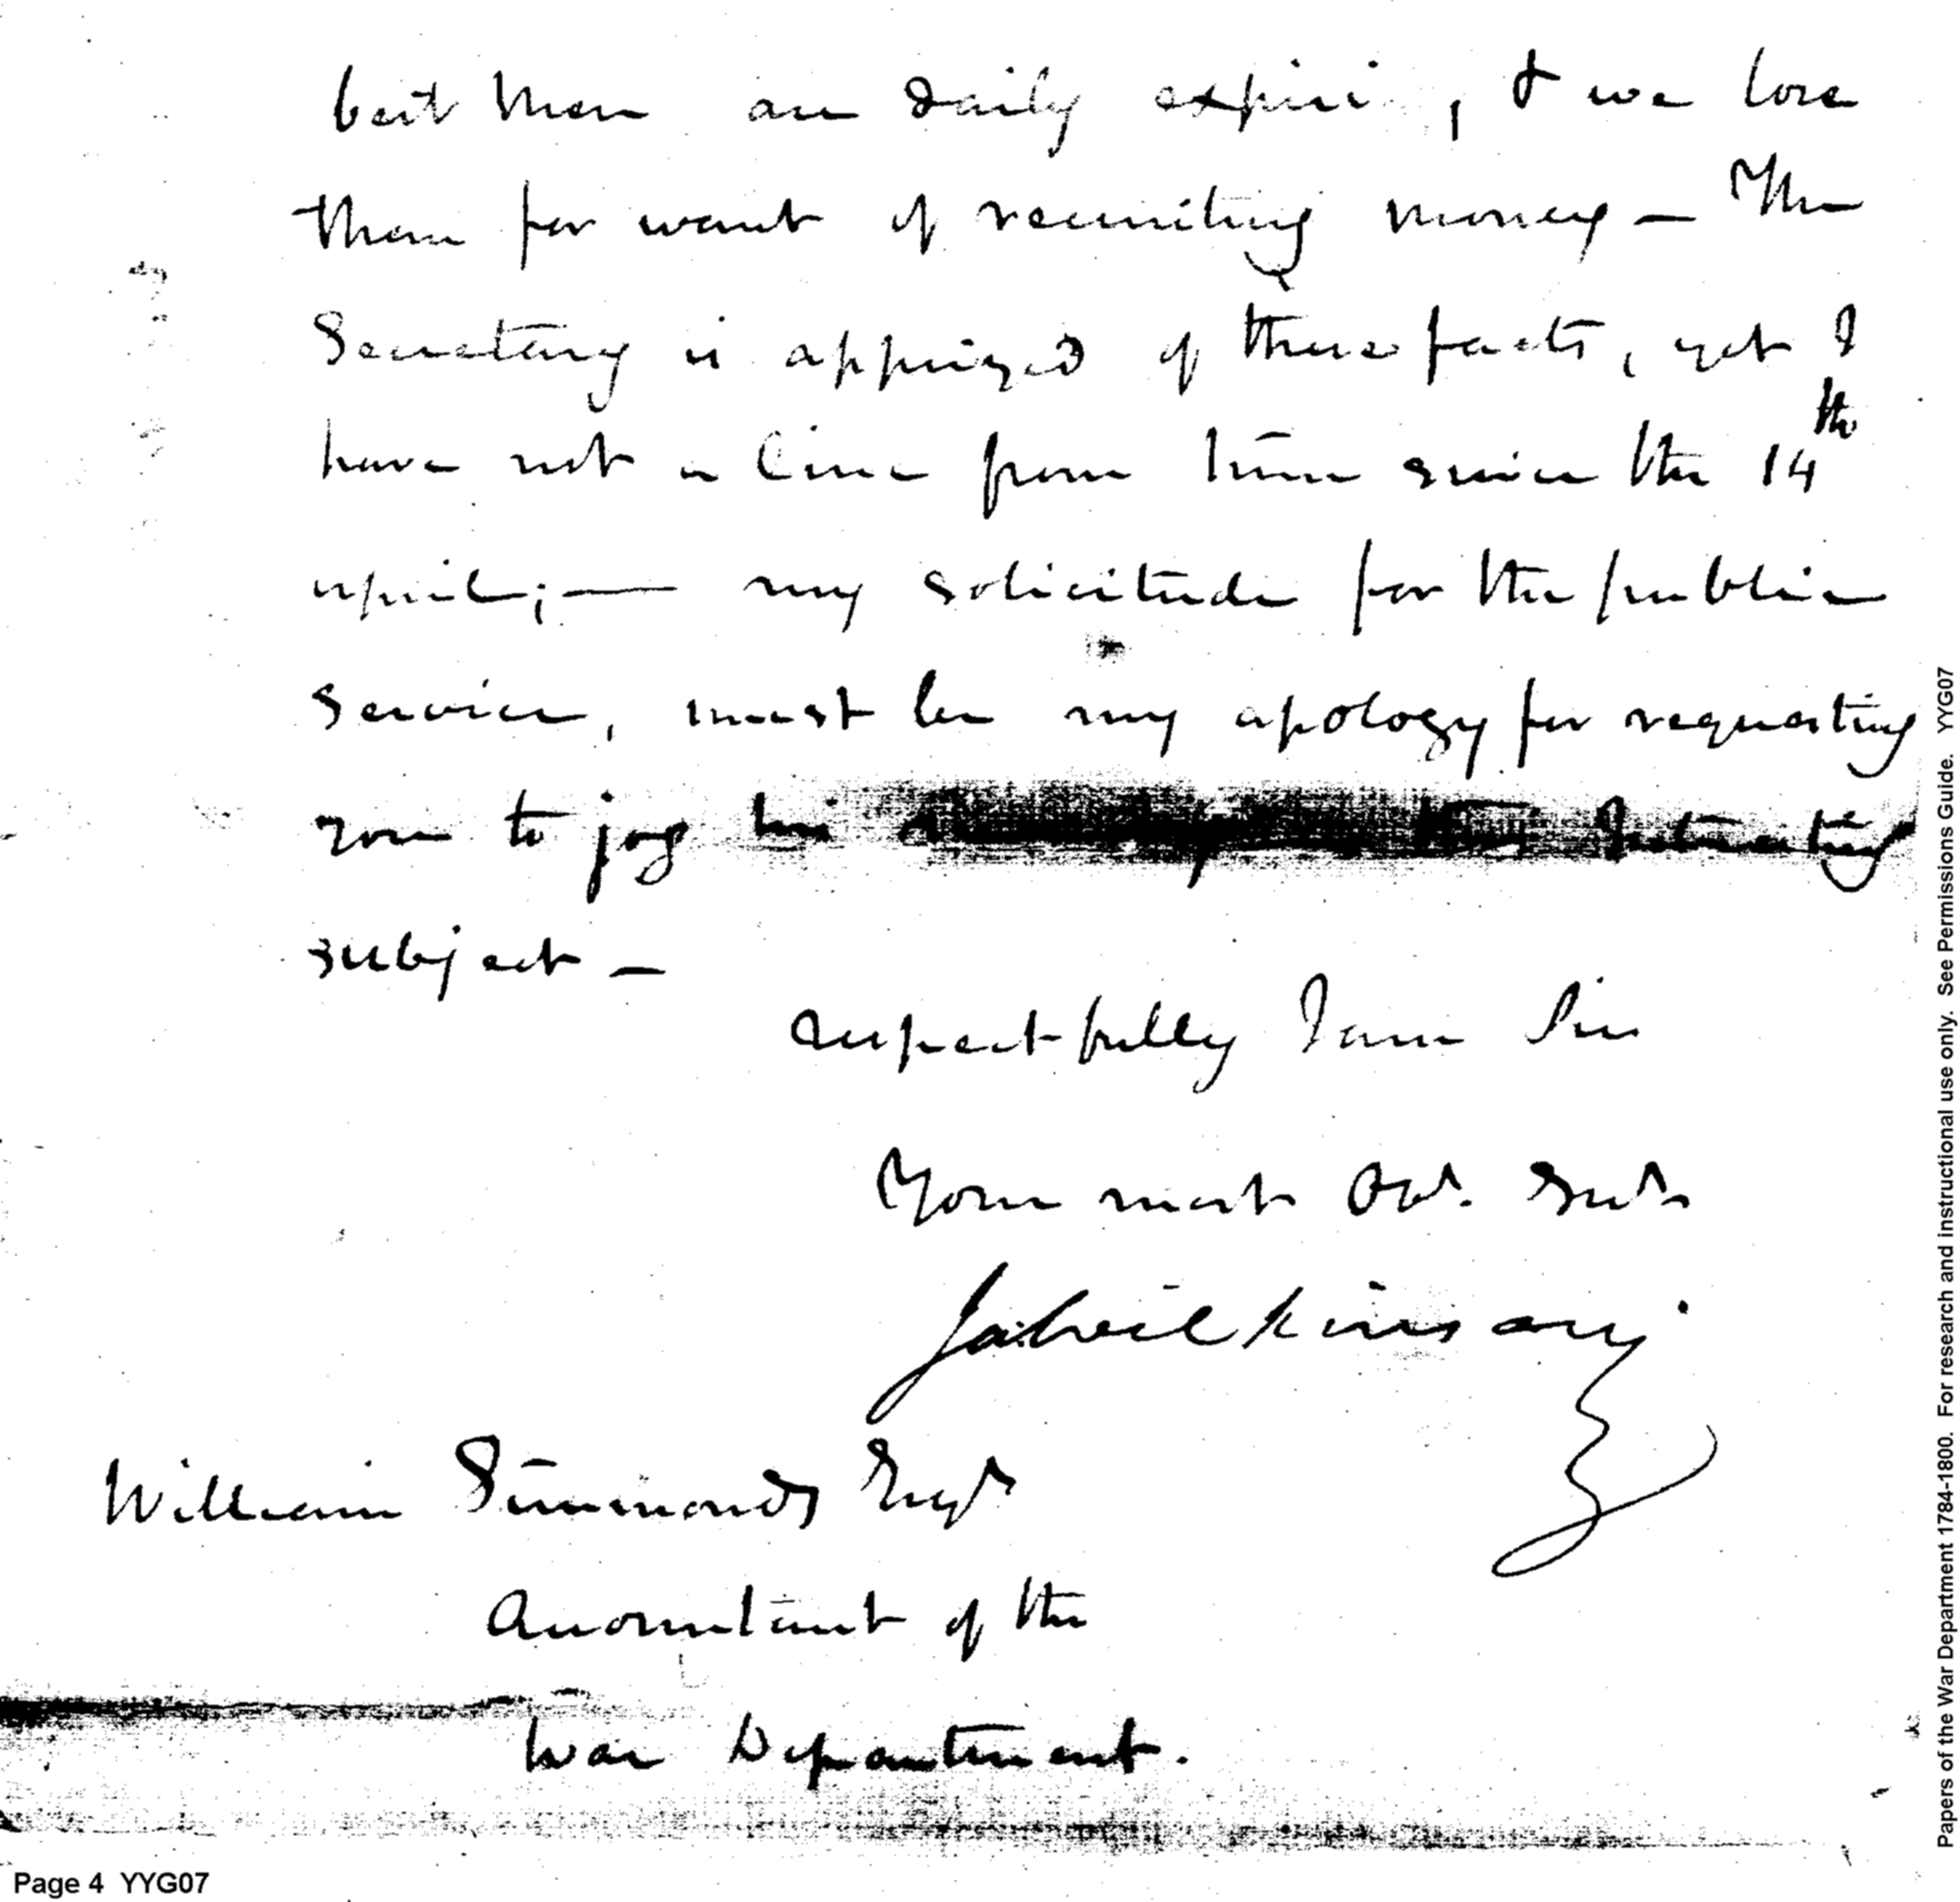 best men are daily expiri , & we lose
them for want of recruiting money — The
Secretary is apprized of these facts, yet I
have not a line from him since the 14th
april; — my solicitude for the public
service, must be my apology for requesting
you to jog his
subject —
respectfully I am Sir
Your most Obt. Svt
Ja: Wilkinson
William Simmonds Esqr
Accountant of the
War Department.
Page 4 YYG07
Papers of the War Department 1784-1800. For research and instructional use only. See Permissions Guide. YYG07